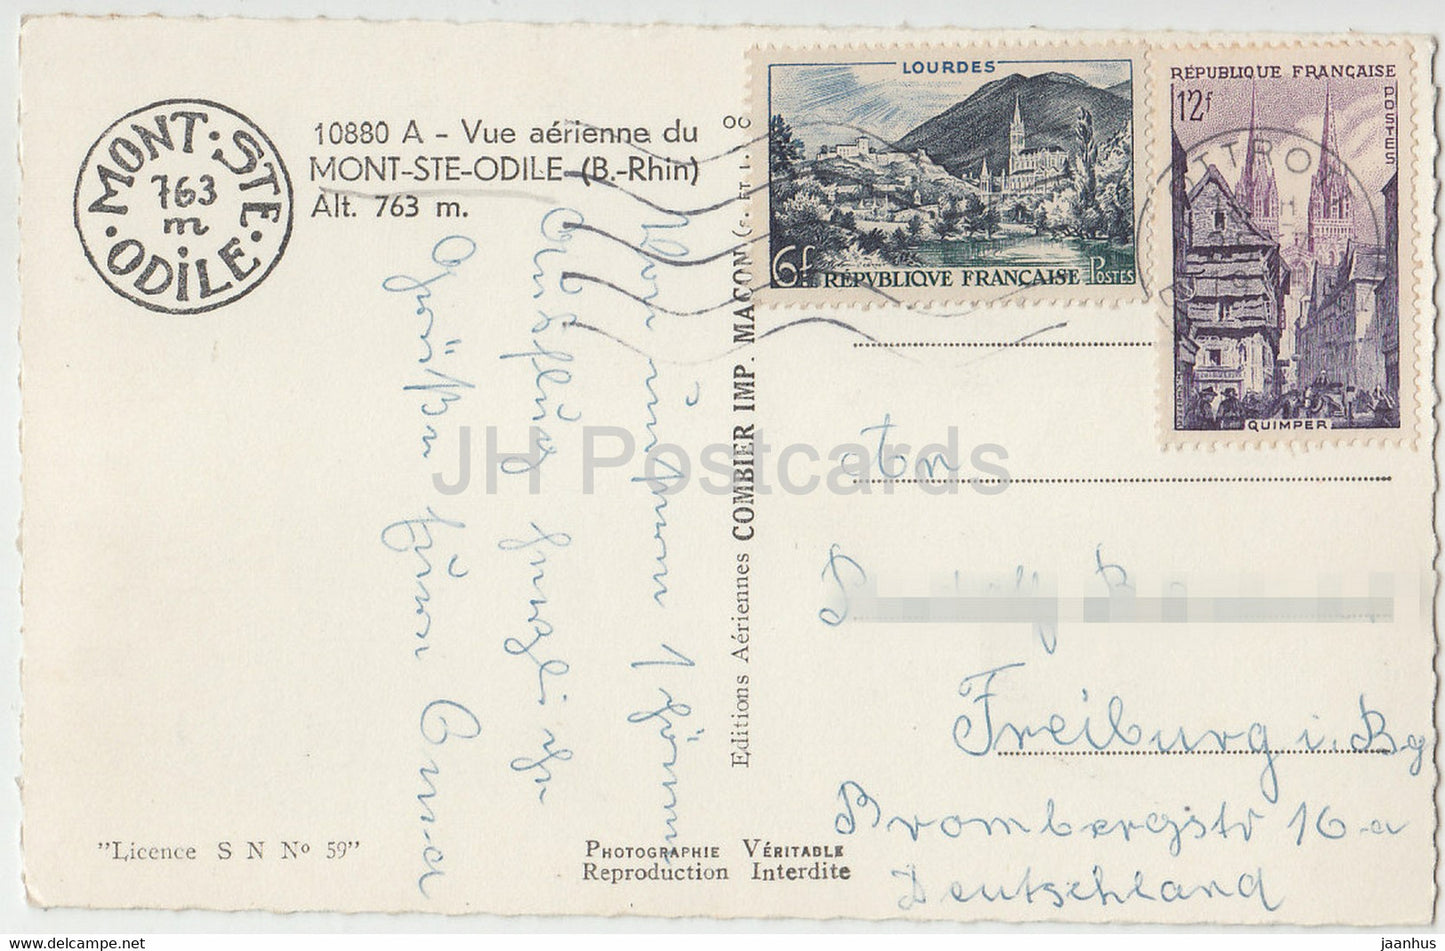 MONT · STE · ODILE ·
763
m
10880 A - Vue aérienne du
MONT-STE-ODILE (B.-Rhin)
Alt. 763 m.
LOURDES
6f RÉPUBLIQUE FRANÇAISE POSTES
RÉPUBLIQUE FRANÇAISE
12f
POSTES
QUIMPER
OTTROTT
Von unserem schönen
Ausflug herzliche
Grüße
Editions Aériennes COMBIER IMP. MACON
An
Freiburg i. Bg
Brombergstr 16 a
Deutschland
"Licence S N No 59"
PHOTOGRAPHIE VÉRITABLE
Reproduction Interdite
JH Postcards
jaanhus — www.delcampe.net